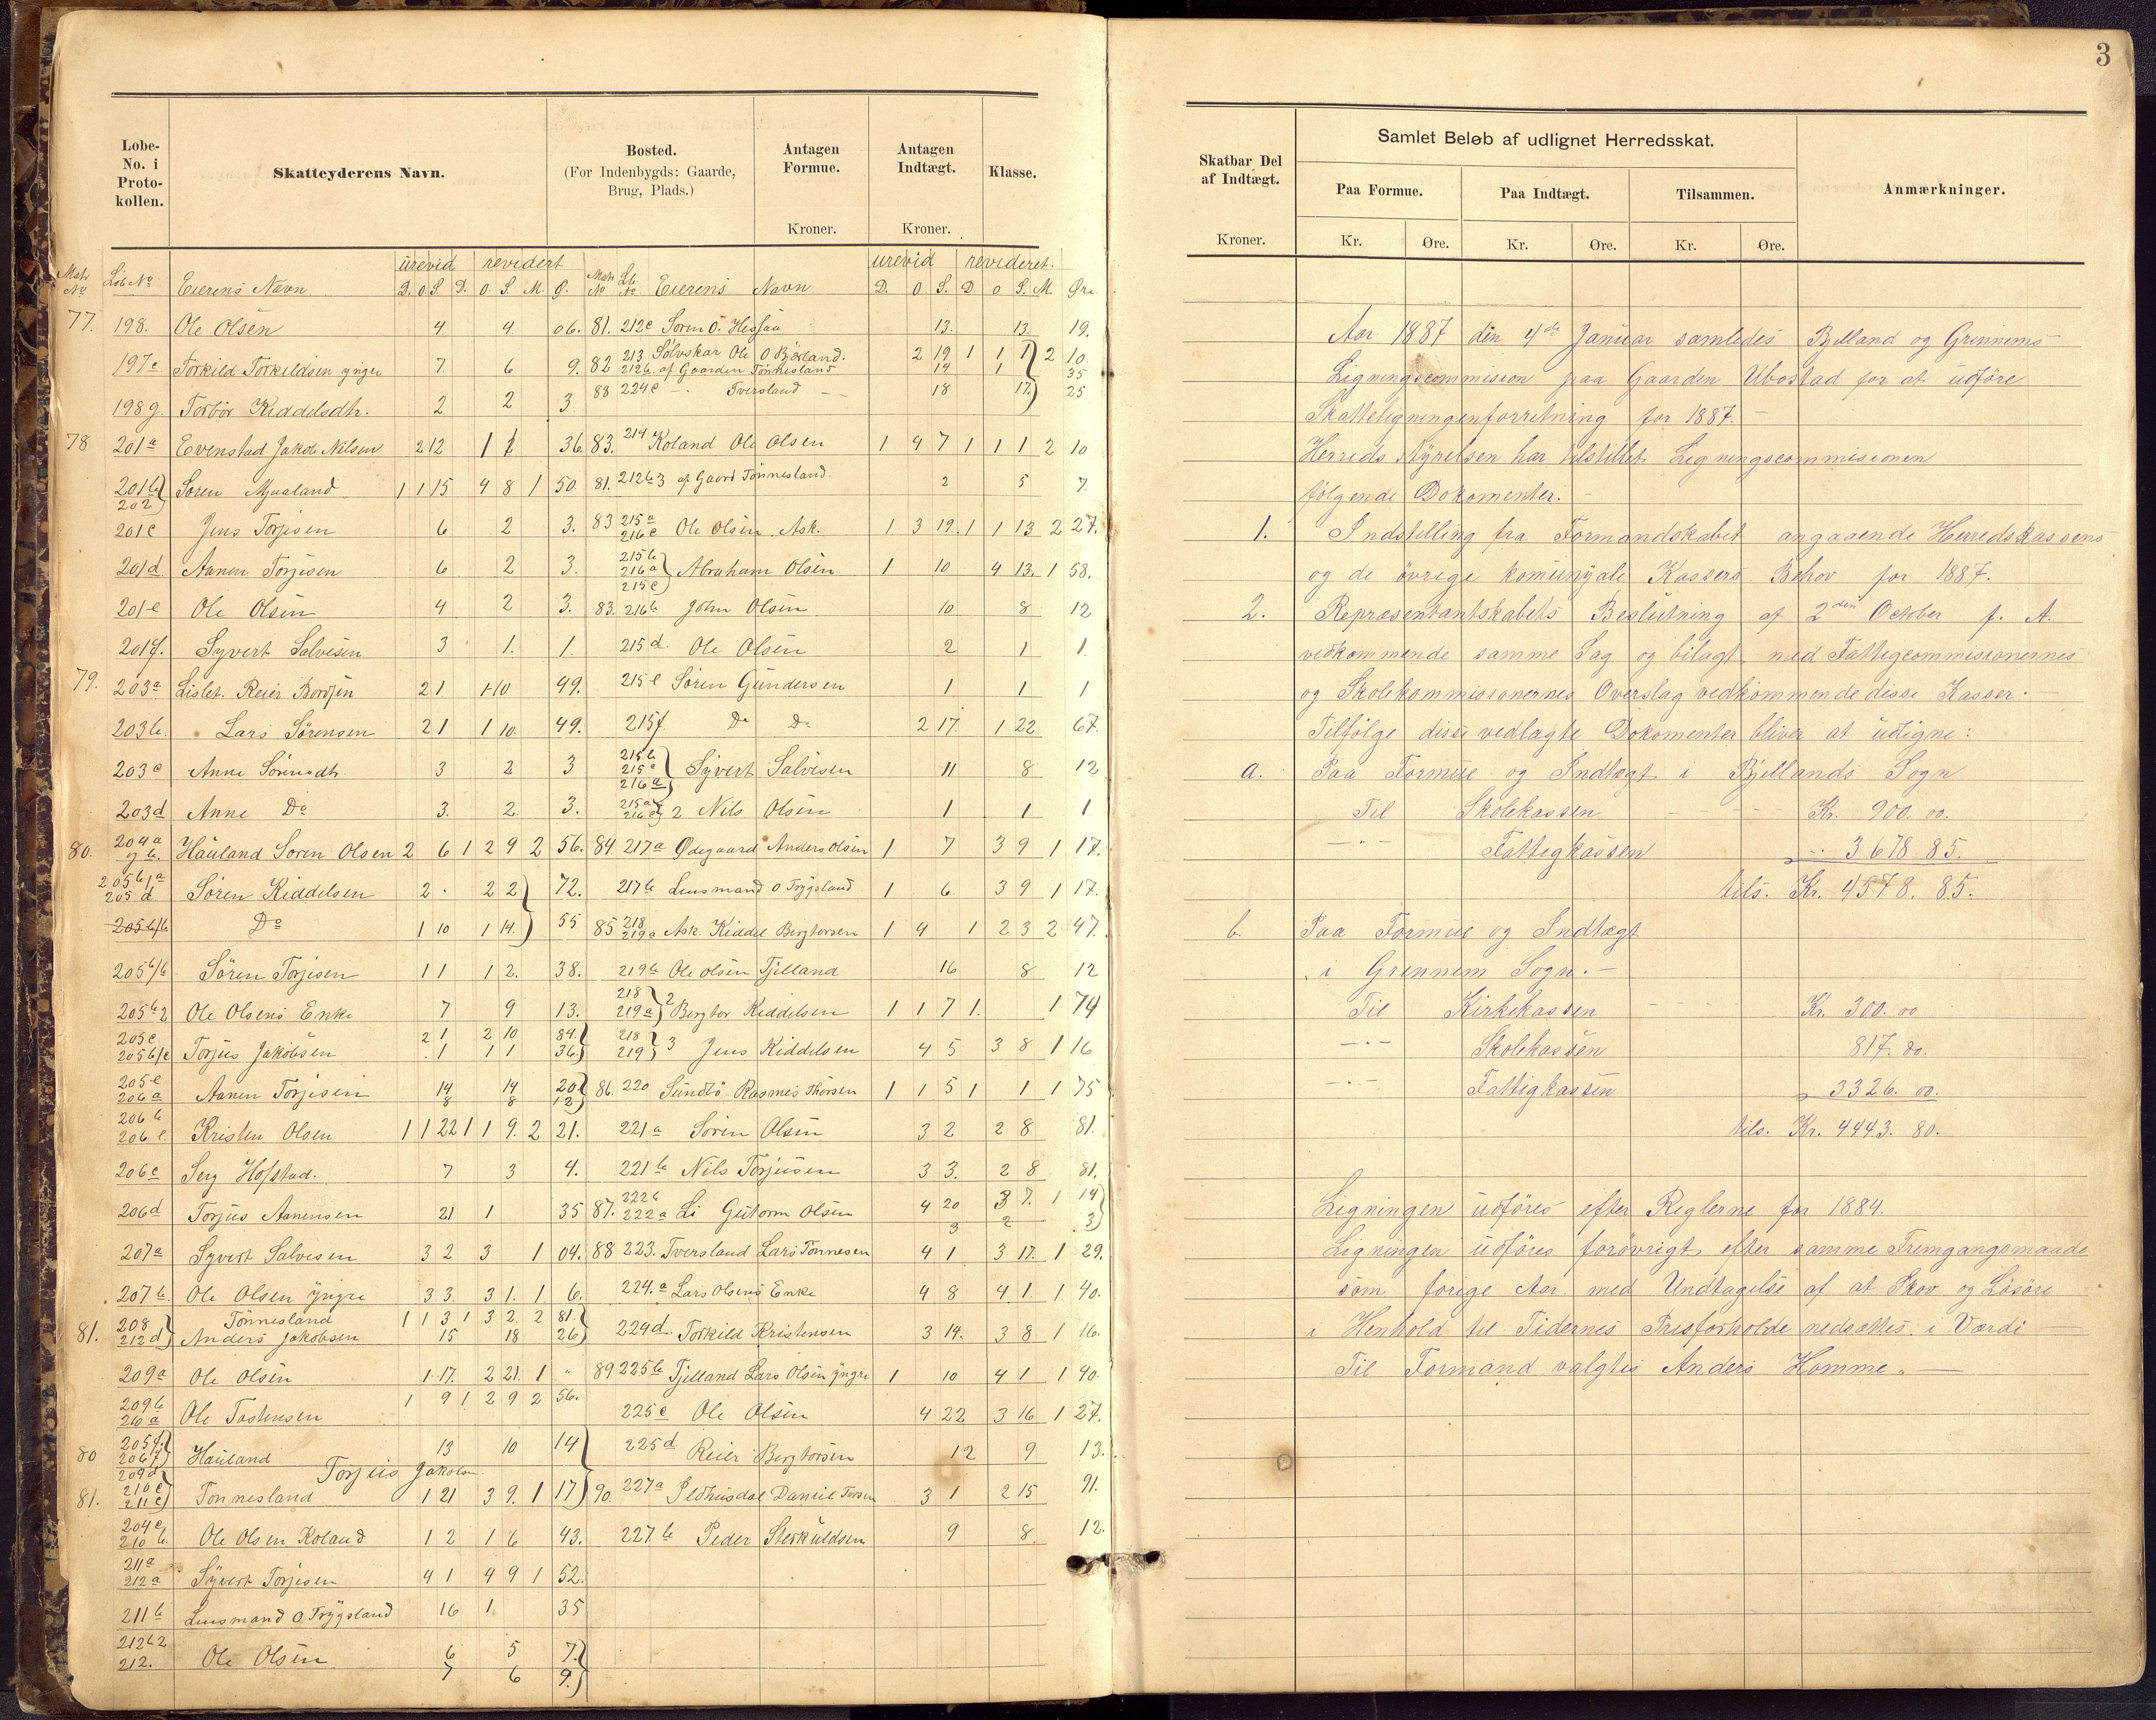 Løbe-No. i Protokollen.
Skatteyderens Navn.
Bosted. (For Indenbygds: Gaarde, Brug, Plads.)
Antagen Formue. Kroner.
Antagen Indtægt. Kroner.
Klasse.
urevid revidert
urevid revideret.
Matr No Løb No Eierens Navn D. O. S. D. O. S. M. Ø.
Matr No Lb. No Eierens Navn D. O. S. D. O. S. M. Øre.
77. 198. Ole Olsen 4 4. 06.
197c Torkild Torkildsen yngre 7 6 9.
198g. Torbor Kiddelsdtr. 2 2 3
78 201a Evenstad Jakob Nilsen 2 12 1 1 36
201b 202 Soren Mjaaland 1 1 15 4 8 1 50.
201c Jens Torjesen 6 2 3.
201d Aanen Torjesen 6 2 3.
201e Ole Olsen 4 2 3.
201f. Syvert Salvesen 3 1. 1.
79. 203a Lislet. Reier 21 1 10 49.
203b. Lars Sörensen 21 1 10. 49.
203c Anne Sörensdtr. 3 2 3
203d Anne Do 3. 2. 3.
80. 204a og b. Hauland Soren Olsen 2 6 1 2 9 2 56.
205b/a 205d Sören Kiddelsen 2 2 2 72.
205b/b Do 1 10 1 14. 55
205b/b Sören Torjesen 1 1 1 2. 38.
205b2 Ole Olsens Enke 7 9 13.
205c 2 1 2 10 84.
205b/c Torjus Jakobsen 1 1 1 36.
205e 206a Aanen Torjesen 14 8 14 8 20. 12
206b 206e. Kristen Olsen 1 1 22 1 1 9. 2 21.
206c Serg Hofstad. 7 3 4.
206d Torjus Aanensen 21 1 35
207a Syvert Salvesen 3 2 3 1 04.
207b. Ole Olsen yngre 3 3. 3 1. 1 6.
81. 208 Tönnesland 1 1 3 1 3 2. 2 81.
212d Anders Jakobsen 15 18 26
209a Ole Olsen 1 17. 2 21. 1 "
209b 210a Ole Tostensen 1 9 1 2 9 2 56.
80 205f. 206f Hauland 13 10 14
Torjus Jakobsen
81. 209d 210c 211c Tonnesland 1 21 3 9. 1 17
204c 210b. Ole Olsen Koland 1 2 1 6 43.
211a 212a Syvert Torjesen 4 1 4 9 1 52.
211b Lensmand O Trygsland 16 1 35
212b2 212. Ole Olsen 6 7 5 6 7. 9.
81. 212c Soren O. Hessaa 13 13. 19.
82 213 Solvskar Ole O Björland. 2 19 1 1 1 2 10.
212b. af Gaarden Tönnesland 14 1 35
88 224c " Tversland 18 17. 25
83. 214 Koland Ole Olsen 1 4 7 1 1 1 2 10
81. 212b3 af Gaard Tönnesland. 2 5 7.
83 215a 216c Ole Olsen Ask. 1 3 19. 1 1 13 2 27.
215b 216a 215c Abraham Olsen 1 10 4 13. 1 58.
83. 216b John Olsen 10 8 12
215d Ole Olsen 2 1 1.
215e Sören Gundersen 1 1 1
215f. Do Do 2 17. 1 22 67.
215b 215c 216a Syvert Salvesen 11 8 12
215a 216c 2 Nils Olsen 1 1 1
84. 217a Ødegaard Anders Olsen 1 7 3 9 1 17.
217b Lensmand O Trygsland 1 6. 3 9 1 17.
85 218 219a Ask. Kiddel Bergtorsen 1 4 1 2 3 2 47.
219b Ole Olsen Tjelland 16 8 12
218 219a 2 Bergtor Kiddelsen 1 1 7 1. 1 74
218 219 3 Jens Kiddelsen 4 5 3 8 1 16
86. 220 Sundbö Rasmus Thorsen 1 1 5 1 1 1 75
221a Sören Olsen 3 2 2 8 81.
221b Nils Torjusen 3 3. 2 8 81.
87. 222b 222a Li Gutorm Olsen 4 20 3 7. 1 14
3 2 3
88 223. Tversland Lars Tönnesen 4 1 3 17. 1 29.
224.a Lars Olsens Enke 4 8 4 1. 1 40.
224d. Torkild Kristensen 3 14. 3 8 1 16.
89 225b Tjelland Lars Olsen yngre 1 10 4 1 1 40.
225c Ole Olsen 4 22 3 16 1 27.
225d Reier Bergtorsen 12 9 13.
90. 227a Daniel 3 1 2 15 91.
227b Peder 9 8. 12.
3
Skatbar Del af Indtægt. Kroner.
Samlet Beløb af udlignet Herredsskat.
Paa Formue. Paa Indtægt. Tilsammen.
Kr. Øre. Kr. Øre. Kr. Øre.
Anmærkninger.
Aar 1887 den 4de Januar samledes Bjelland og Grinnems
Ligningscommision paa Gaarden Ubostad for at udföre
Skatteligningenforretning for 1887. –
Herreds Styrelsen har tilstillet Ligningscommisionen
fölgende Dokomenter. –
1. Indstilling fra Formandskabet angaaende Herredskassens
og de övrige komunale Kassers Behov for 1887.
2. Repræsentantskabets Beslutning af 2den October f. A.
vedkommende samme Sag og bilagt med Fattigcommisionernes
og Skolekommissionernes Overslag vedkommende disse Kasser. –
Tilfölge disse vedlagte Dokomenter bliver at udligne:
a. Paa Formue og Indtægt i Bjellands Sogn
Til Skolekassen - - - - Kr. 900. 00.
– " – Fattigkassen " 3678 85.
tils. Kr. 4578. 85.
b. Paa Formue og Indtægt
i Grennem Sogn. –
Til Kirkekassen - - - Kr. 300. 00
– " – Skolekassen 817. 80.
– " – Fattigkassen 3326. 00.
tils. Kr. 4443. 80.
Ligningen udföres efter Reglerne for 1884.
Ligningen udföres forövrigt efter samme Fremgangsmaade
som forige Aar med Undtagelse af at Skov og Lösöre
i Henhold til Tidernes Prisforholde nedsattes i Værdi —
Til Formand valgtes Anders Homme. —